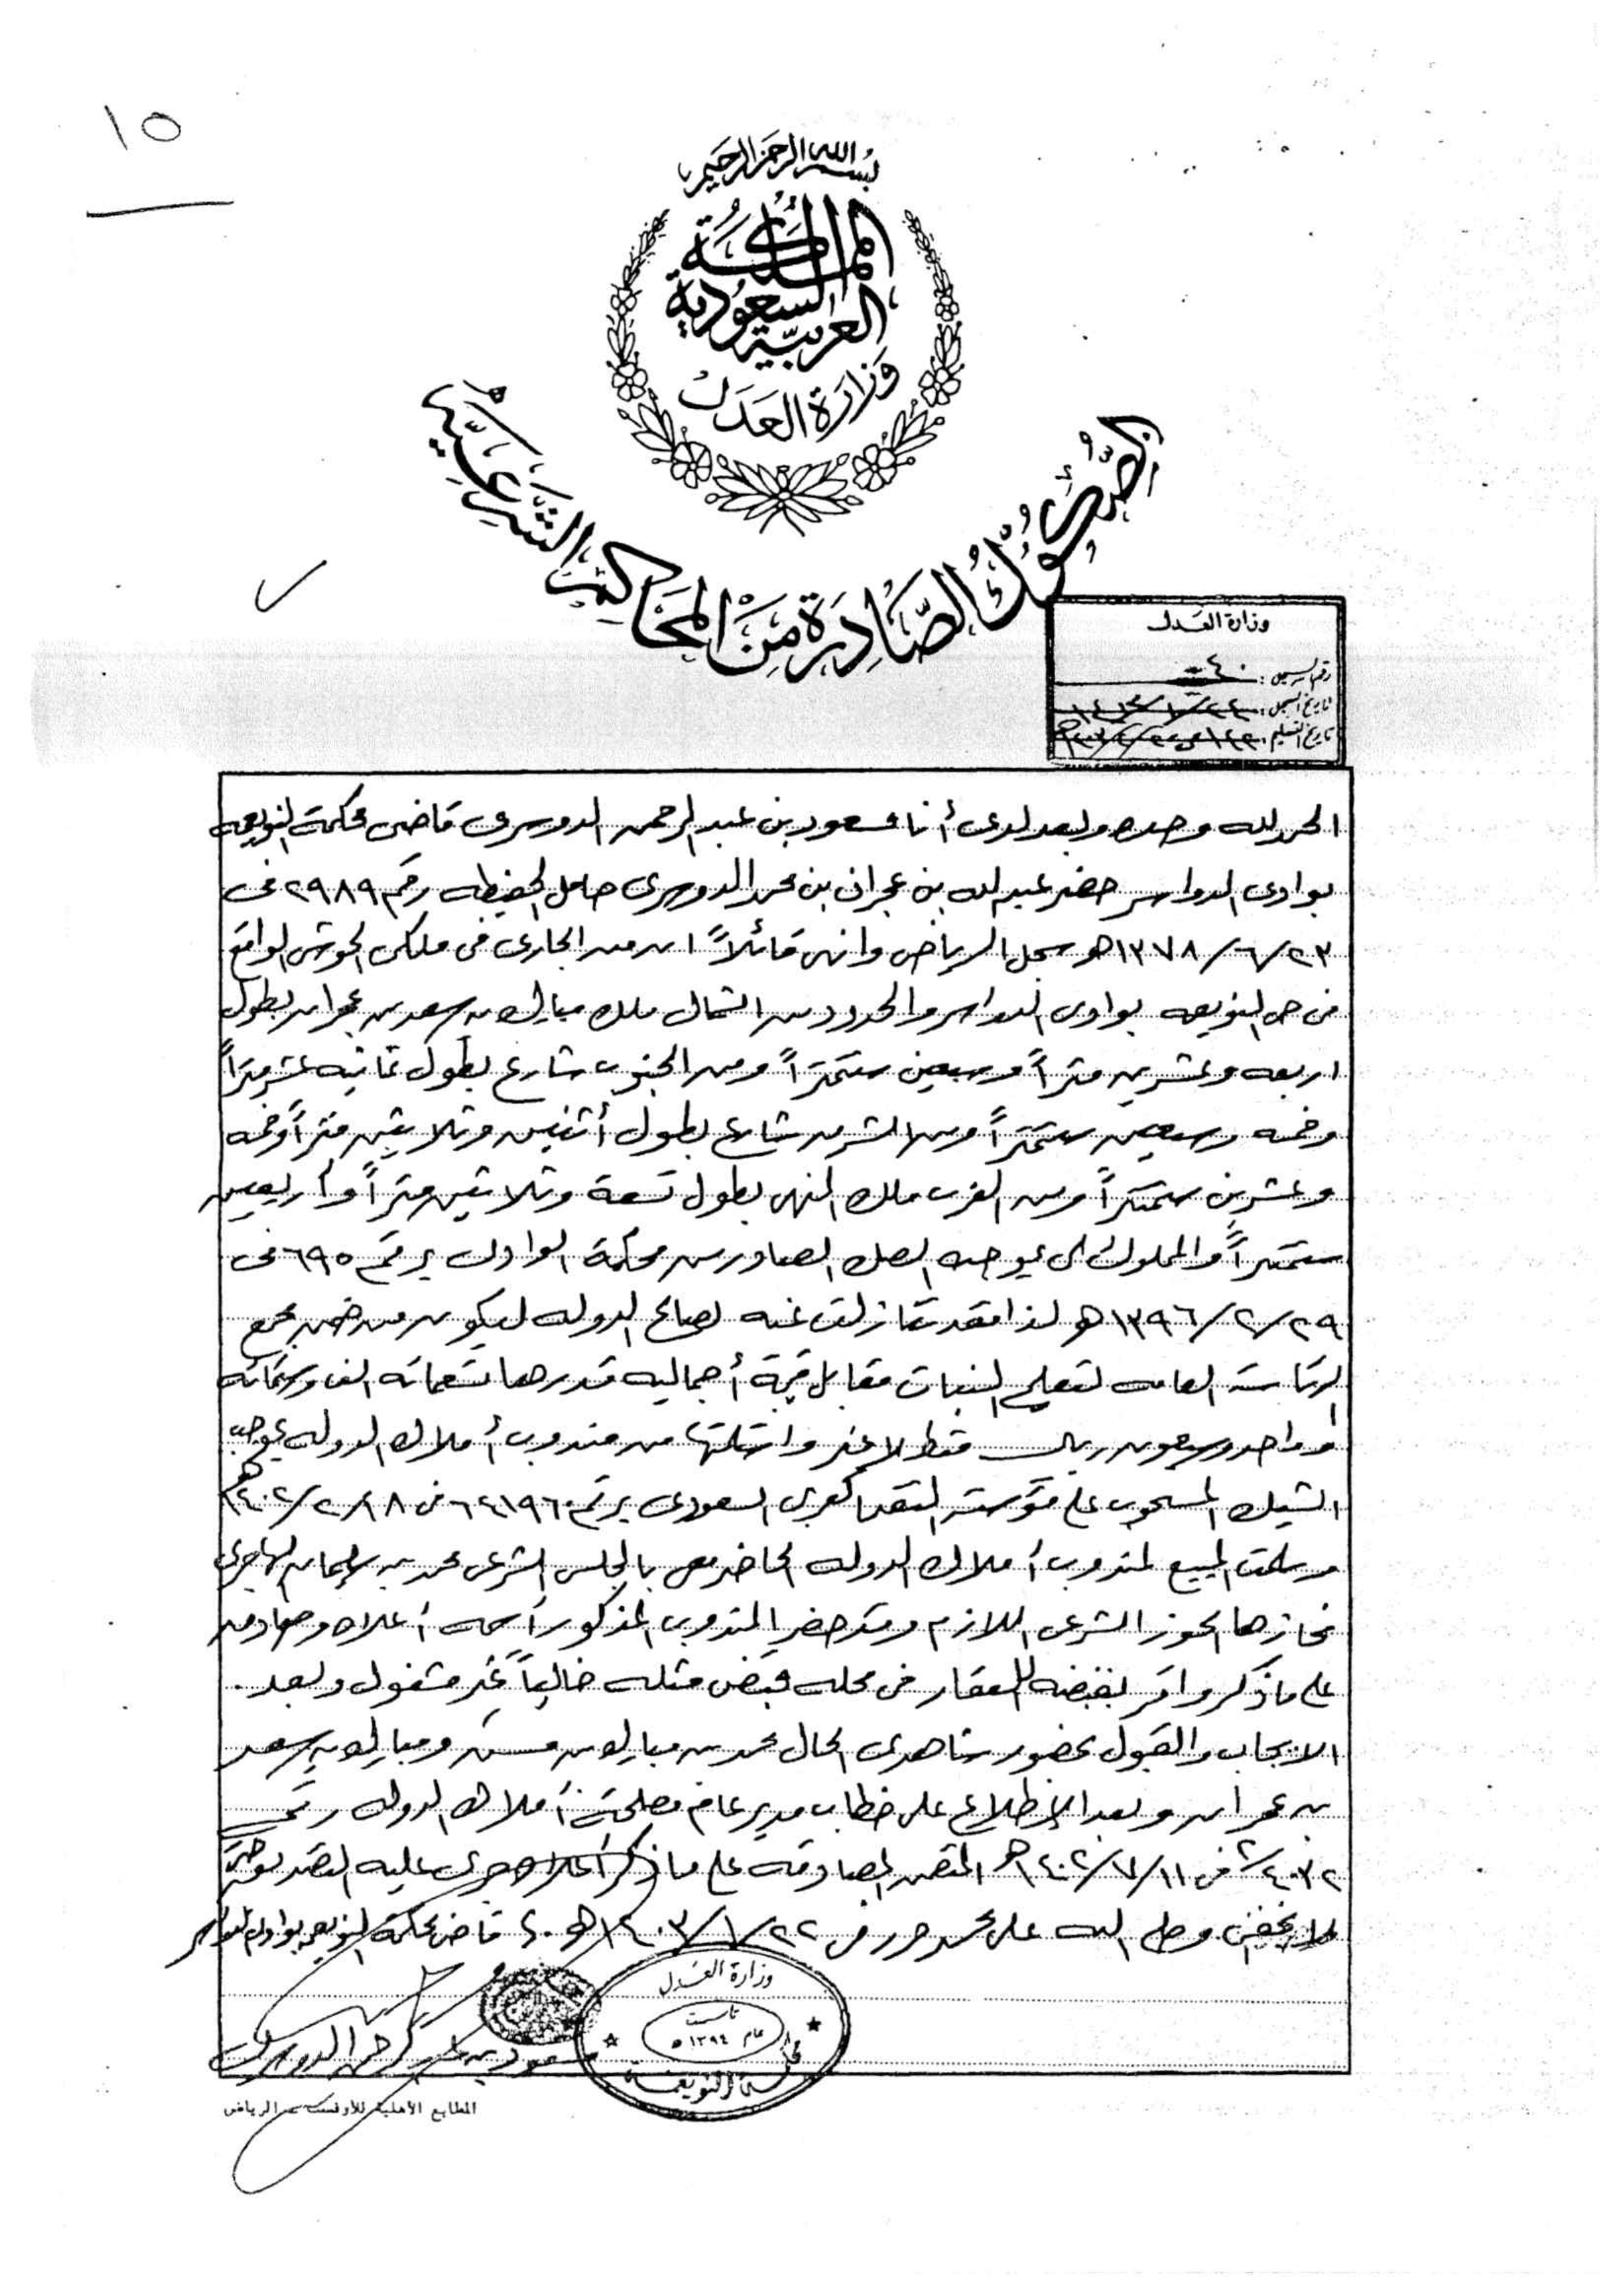 ١٥
بسم الله الرحمن الرحيم
المملكة العربية السعودية
وزارة العدل
الصكوك الصادرة من المحاكم الشرعية
وزارة العدل
رقم السجل: ٤٠
تاريخ السجل:
تاريخ التسليم:
الحمد لله وحده وبعد لدى أنا مسعود بن عبد الرحمن الدوسرى قاضى محكمة النويعمه
بوادى الدواسر حضر عبد الله بن عجران بن محمد الدوسرى حامل الحفيظه رقم ٢٩٨٩ فى
٢٣/٦/١٣٧٨هـ سجل الرياض وانهى قائلاً ان من الجارى فى ملكى الحوش الواقع
فى حى النويعمه بوادى الدواسر والمحدود من الشمال ملك مبارك بن سعد بن عجران بطول
اربعه وعشرين متراً وسبعين سنتمتراً ومن الجنوب شارع بطول ثمانيه عشر متراً
وخمسه وسبعين سنتمتراً ومن الشرق شارع بطول أثنين وثلاثين متراً وخمسه
وعشرين سنتمتراً ومن الغرب ملك المنهى بطول تسعة وثلاثين متراً وأربعين
سنتمتراً والمملوك لى بموجب الصك الصادر من محكمة الوادى برقم ٦٩٥ فى
٢٩/٢/١٣٩٦هـ لذا فقد تنازلت عنه لصالح الدوله ليكون من ضمن مجمع
الرئاسة العامه لتعليم البنات مقابل قيمة أجماليه قدرها تسعمائه الف وستمائه
وواحد وسبعون ريال فقط لا غير واستلمتها من مندوب أملاك الدوله بموجب
الشيك المسحوب على مؤسسة النقد العربى السعودى برقم ٦٤١٩٦٠ فى ١٨/٢/١٤٠٢هـ
وسلمت المبيع لمندوب أملاك الدوله الحاضر معى بالمجلس الشرعى محمد بن سليمان الهاجرى
فحازها الحوز الشرعى اللازم وقد حضر المندوب المذكور أسمه أعلاه وصادق
على ما ذكر وأقر بقبضه العقار فى محله قبض مثله خالياً غير مشغول وبعد
الايجاب والقبول بحضور شاهدى الحال محمد بن مبارك بن مسفر ومبارك بن سعد
بن عجران وبعد الإطلاع على خطاب مدير عام مصلحة أملاك الدوله رقم
٤٠٣٢/٢ فى ١١/٧/١٤٠٢هـ المتضمن المصادقه على ما ذكر أعلاه جرى عليه التصديق حتى
لا يخفى وصلى الله على محمد حرر فى ٢٢/١/١٤٠٣هـ قاضى محكمة النويعمه بوادى الدواسر
مسعود بن عبد الرحمن الدوسرى
وزارة العدل
تأسست
عام ١٣٩٤ هـ
محكمة النويعمة
المطابع الأهلية للأوفست - الرياض